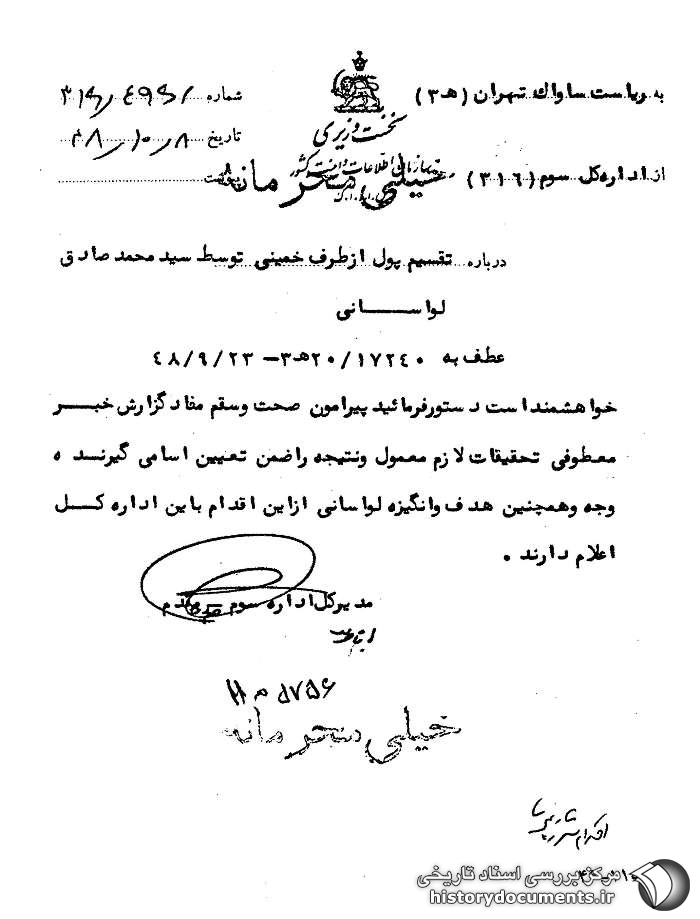 به ریاست ساواک تهران (ه‍ ۳)
نخست وزیری
سازمان اطلاعات و امنیت کشور
س.ا.و.ا.ک
شماره
تاریخ ۴۸/۱۰/۸
پیوست
از اداره کل سوم (۳۱۶)
خیلی محرمانه
درباره تقسیم پول از طرف خمینی توسط سید محمد صادق
لواسانی
عطف به ۲۰/۱۷۲۴۰ه‍ ۳ – ۴۸/۹/۲۳
خواهشمند است دستور فرمائید پیرامون صحت و سقم مفاد گزارش خبر
معطوفی تحقیقات لازم معمول و نتیجه را ضمن تعیین اسامی گیرنده
وجه و همچنین هدف و انگیزه لواسانی از این اقدام باین اداره کل
اعلام دارند .
مدیرکل اداره سوم مقدم
خیلی محرمانه
مرکز بررسی اسناد تاریخی
historydocuments.ir